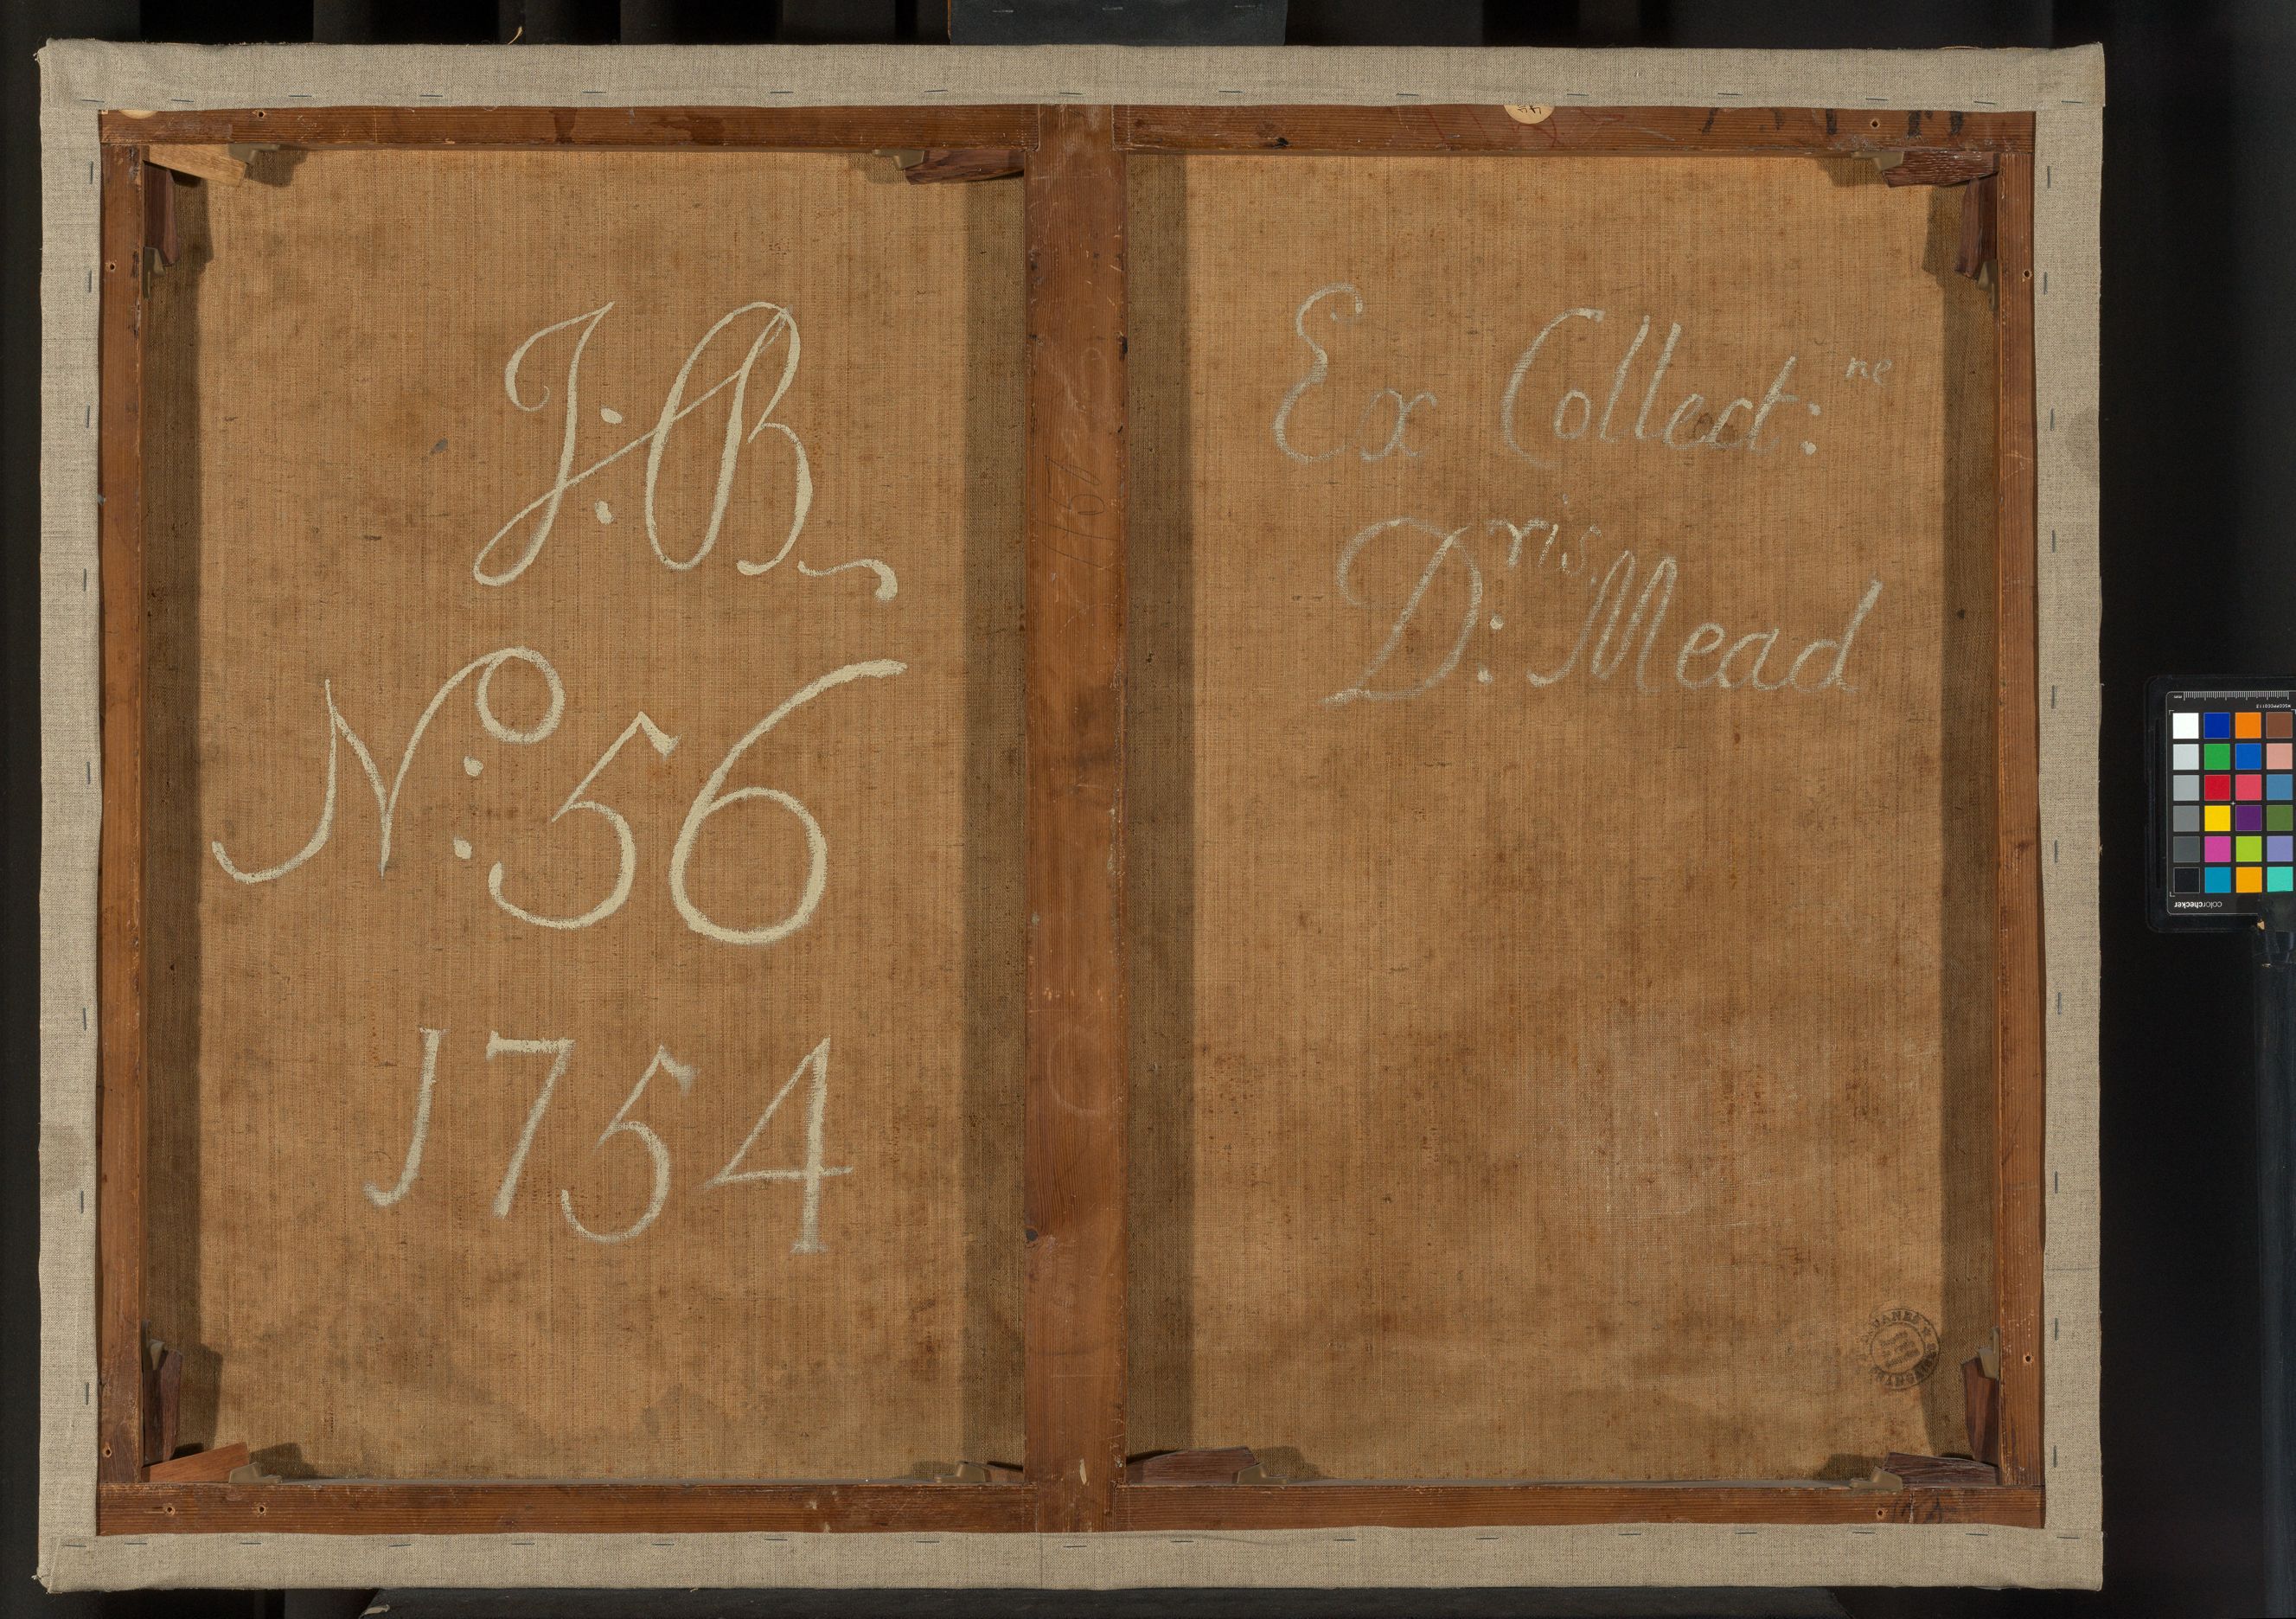 J:B
Nº: 56
1754
Ex Collect:ne
Dris: Mead
colorchecker